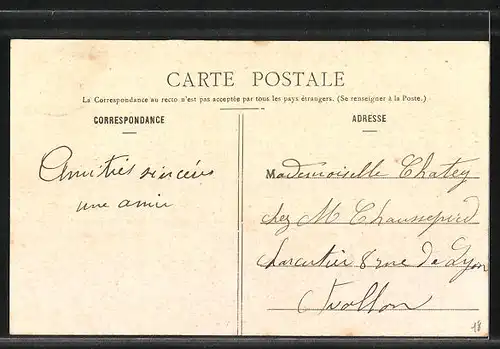 CARTE POSTALE
La Correspondance au recto n'est pas acceptée par tous les pays étrangers. (Se renseigner à la Poste.)
CORRESPONDANCE
Amitiés sincères
une amie
ADRESSE
Mademoiselle Chatey
chez M Chaussepied
charcutier 8 rue de Lyon
18